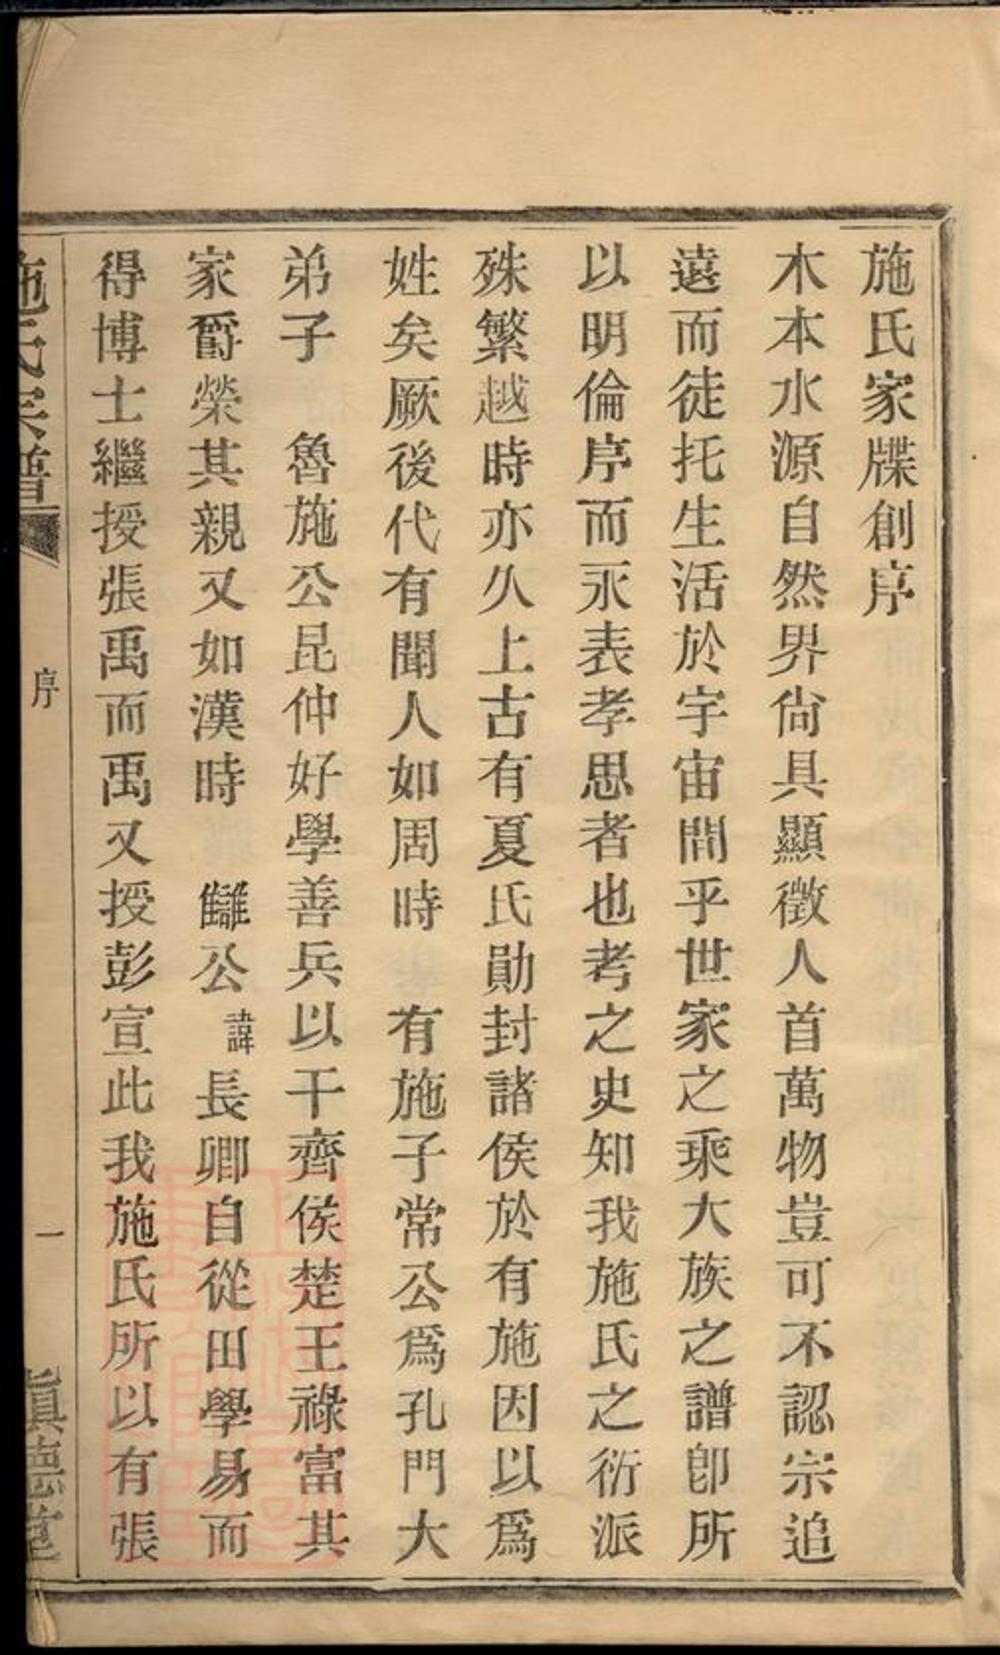 施氏家牒創序
木本水源自然界尙具顯徵人首萬物豈可不認宗追
遠而徒托生活於宇宙間乎世家之乘大族之譜卽所
以明倫序而永表孝思者也考之史知我施氏之衍派
殊繁越時亦久上古有夏氏勛封諸侯於有施因以爲
姓矣厥後代有聞人如周時　有施子常公爲孔門大
弟子　魯施公昆仲好學善兵以干齊侯楚王祿富其
家爵榮其親又如漢時　讎公諱長卿自從田學易而
得博士繼授張禹而禹又授彭宣此我施氏所以有張
施氏宗譜　序　一　眞德堂